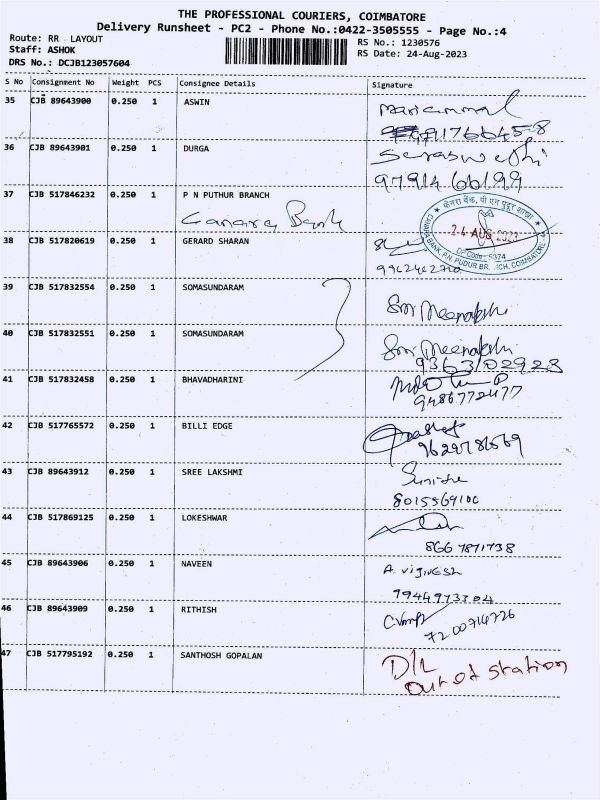 THE PROFESSIONAL COURIERS, COIMBATORE
Delivery Runsheet - PC2 - Phone No.:0422-3505555 - Page No.:4
Route: RR - LAYOUT
RS No.: 1230576
Staff: ASHOK
RS Date: 24-Aug-2023
DRS No.: DCJB123057604
S No Consignment No Weight PCS Consignee Details Signature
35 CJB 89643900 0.250 1 ASWIN Mariammal
36 CJB 89643901 0.250 1 DURGA Saraswathi
9791466199
37 CJB 517846232 0.250 1 P N PUTHUR BRANCH
Canara Bank
24 AUG 2023
38 CJB 517820619 0.250 1 GERARD SHARAN
39 CJB 517832554 0.250 1 SOMASUNDARAM Sri Meenakshi
40 CJB 517832551 0.250 1 SOMASUNDARAM Sri Meenakshi
9363102928
41 CJB 517832458 0.250 1 BHAVADHARINI
9486772477
42 CJB 517765572 0.250 1 BILLI EDGE
43 CJB 89643912 0.250 1 SREE LAKSHMI
8015569100
44 CJB 517869125 0.250 1 LOKESHWAR
8667871738
45 CJB 89643906 0.250 1 NAVEEN A. VIGNESH
7944973304
46 CJB 89643909 0.250 1 RITHISH
47 CJB 517795192 0.250 1 SANTHOSH GOPALAN D/L
out of station